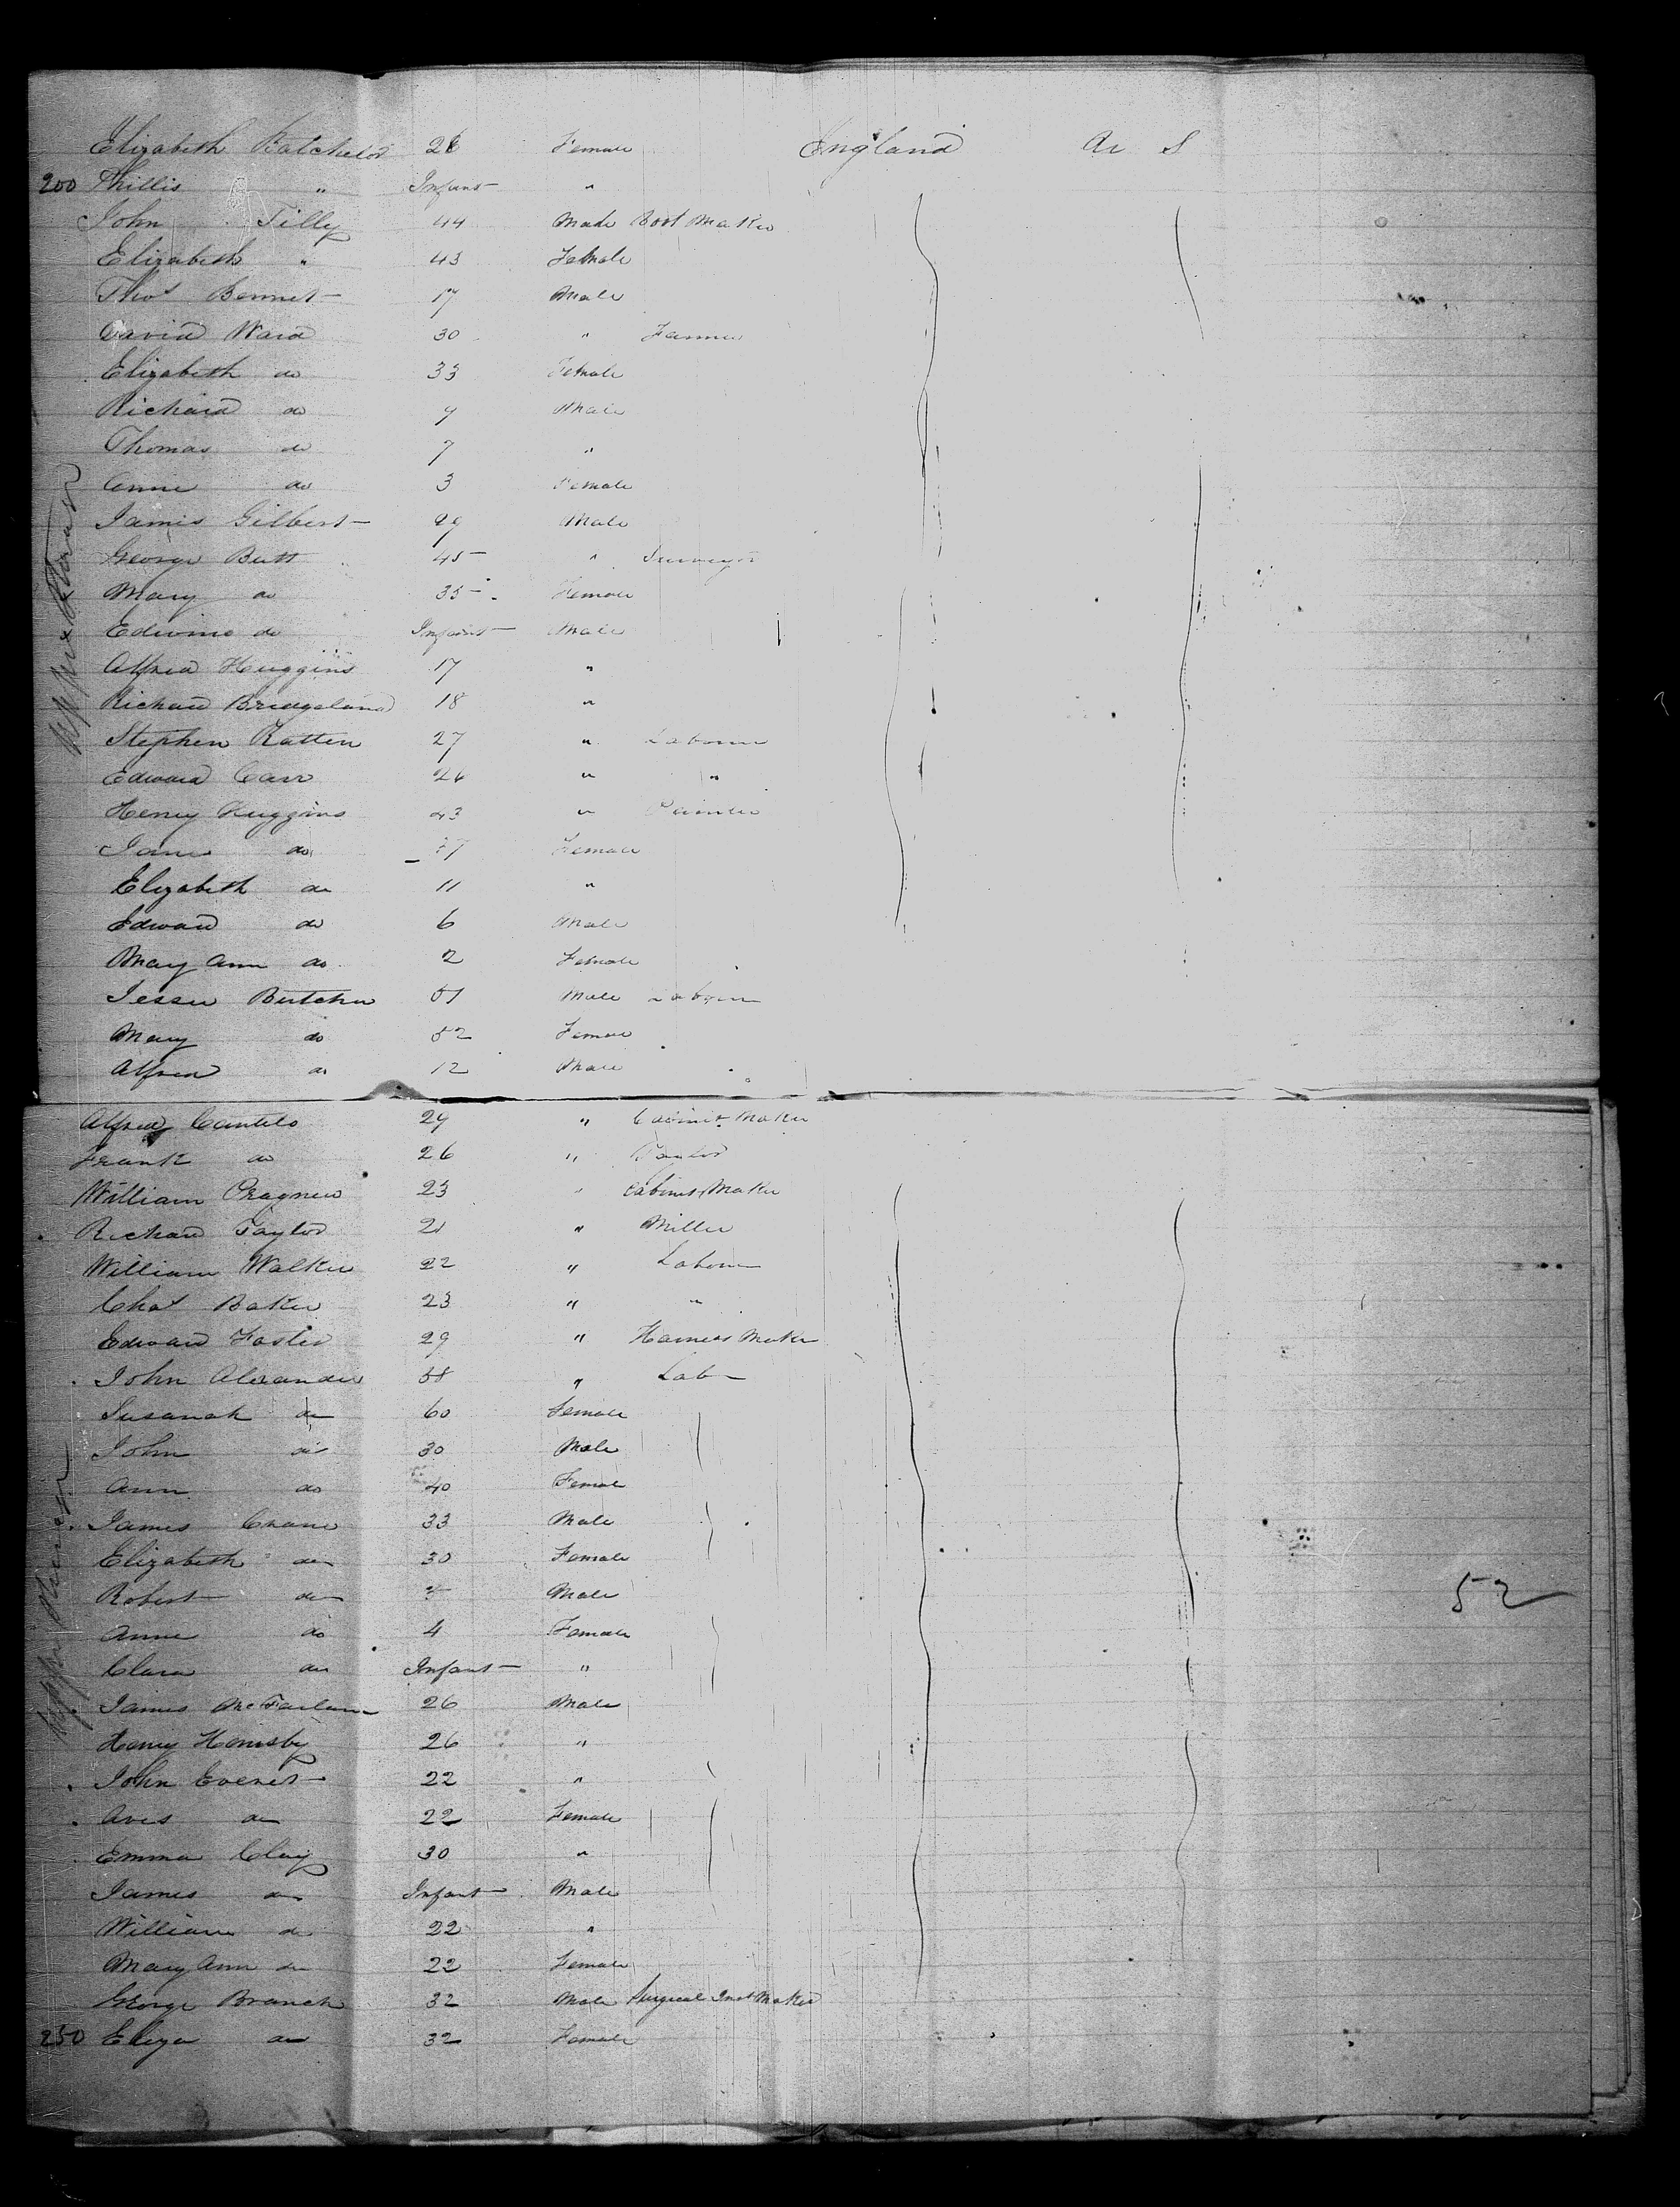 Elizabeth Batchelor 26 Female England U S
200 Phillis " Infant "
John Tilly 44 Male Boot Maker
Elizabeth " 43 Female
Thos Bennet 17 Male
David Ward 30 " Farmer
Elizabeth do 33 Female
Richard do 9 Male
Thomas do 7 "
Anne do 3 Female
James Gilbert 29 Male
George Butt 45 " Surveyor
Mary do 35 Female
Edwine do Infant Male
Alfred Huggins 17 "
Richard Bridgeland 18 "
Stephen Ratten 27 " Labourer
Edward Carr 26 " "
Henry Huggins 43 " Painter
Jane do 37 Female
Elizabeth do 11 "
Edward do 6 Male
Mary Ann do 2 Female
Jesse Butcher 51 Male Labourer
Mary do 52 Female
Alfred do 12 Male
Alfred Cantelo 29 " Cabinet Maker
Frank do 26 " Taylor
William Pragnew 23 " Cabinet Maker
Richard Taylor 21 " Miller
William Walker 22 " Labourer
Chas Baker 23 " "
Edward Foster 29 " Harness Maker
John Alexander 58 " Lab
Susanah do 60 Female
John do 30 Male
Ann do 40 Female
James Crane 33 Male
Elizabeth do 30 Female
Robert do 5 Male 52
Anne do 4 Female
Clara do Infant "
James McFarlane 26 Male
Henry Hornsby 26 "
John Everet 22 "
Aves do 22 Female
Emma Clay 30 "
James do Infant Male
William do 22 "
Mary Ann do 22 Female
George Branch 32 Male Surgical Inst Maker
250 Eliza do 32 Female